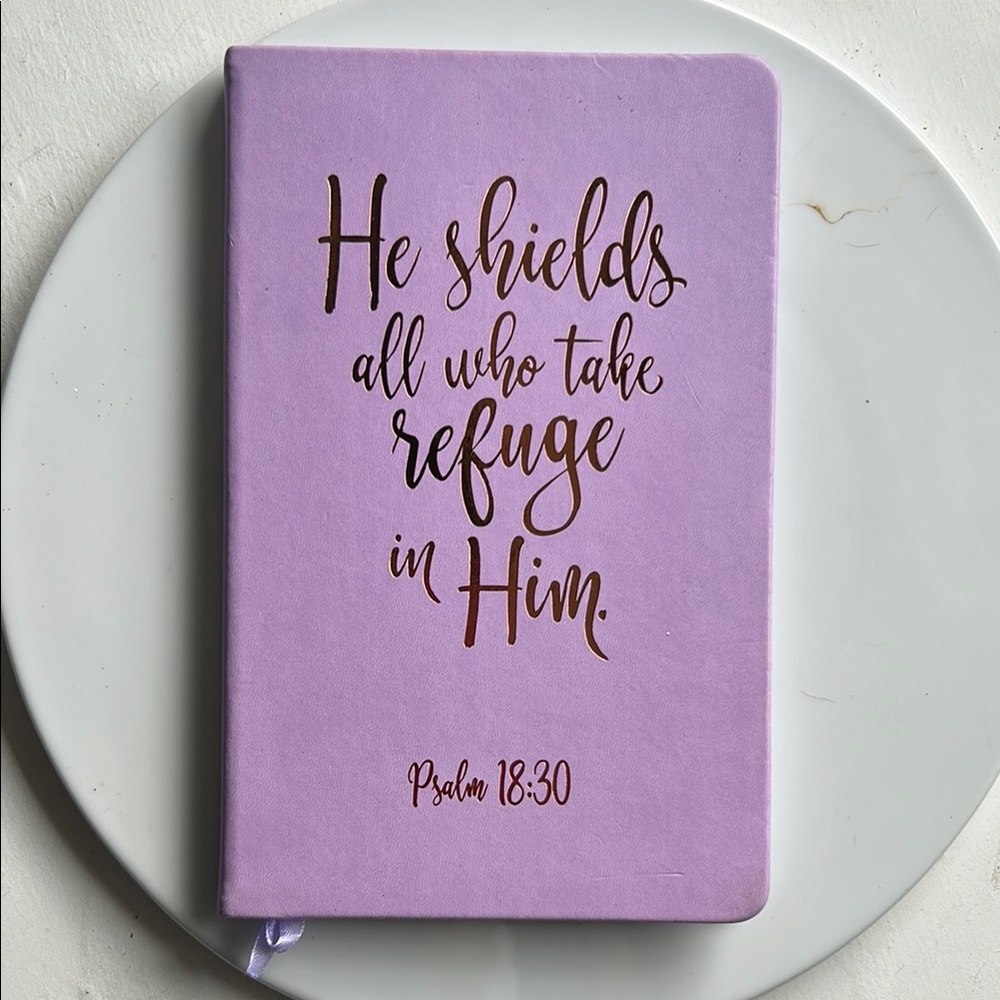 He shields
all who take
refuge
in Him.
Psalm 18:30